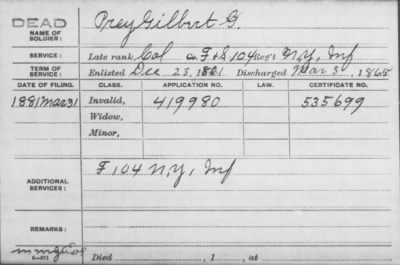 DEAD
NAME OF SOLDIER: Prey Gilbert G.
SERVICE: Late rank Col Co. F+S 104 Reg't N.Y. Inf
TERM OF SERVICE: Enlisted Dec 23, 1861 Discharged Mar 3, 1865
DATE OF FILING. CLASS. APPLICATION NO. LAW. CERTIFICATE NO.
1881 Mar 31 Invalid, 419980 535699
Widow,
Minor,
ADDITIONAL SERVICES: F 104 N.Y. Inf
REMARKS:
Died , 1 , at